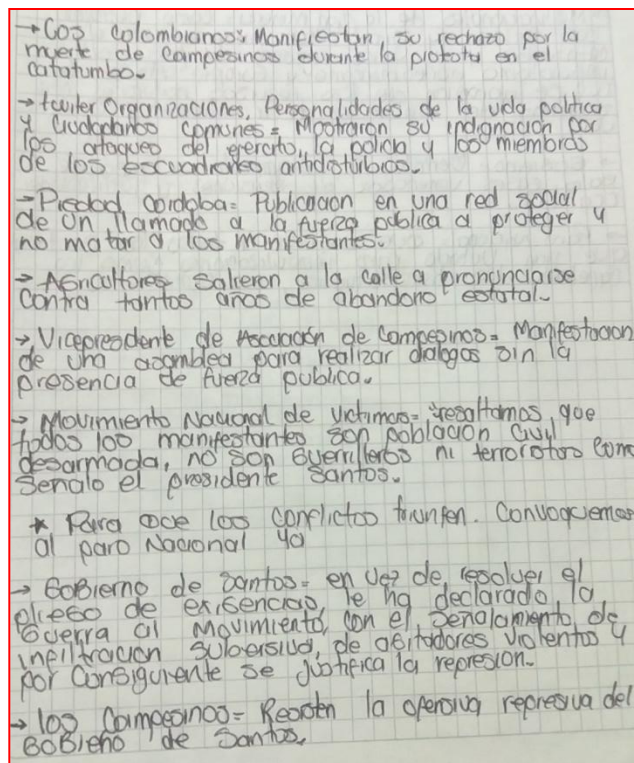 → Los Colombianos: Manifiestan su rechazo por la
muerte de campesinos durante la protota en el
catatumbo.
→ twiter Organizaciones, Personalidades de la vida politica
y ciudadanos comunes = Mostraron su indignación por
los ataques del ejercito, la policia y los miembros
de los escuadrones antidisturbios.
→ Piedad cordoba = Publicacion en una red social
de un llamado a la fuerza publica a proteger y
no matar a los manifestantes.
→ Agricultores salieron a la calle a pronunciarse
contra tantos años de abandono estatal.
→ Vicepresidente de Asociación de campesinos = Manifestacion
de una asamblea para realizar dialogos sin la
presencia de fuerza publica.
→ Movimiento Nacional de victimas = resaltamos que
todos los manifestantes son población civil
desarmada, no son guerrilleros ni terroristas como
señalo el presidente santos.
* Para que los conflictos triunfen. Convoquemos
al paro Nacional ya
→ Gobierno de santos = en vez de resolver el
pliego de exigencias, le ha declarado la
guerra al movimiento, con el señalamiento de
infiltración subersiva, de agitadores violentos y
por consiguiente se justifica la represion.
→ los campesinos = Resisten la ofensiva represiva del
Gobieno de santos.